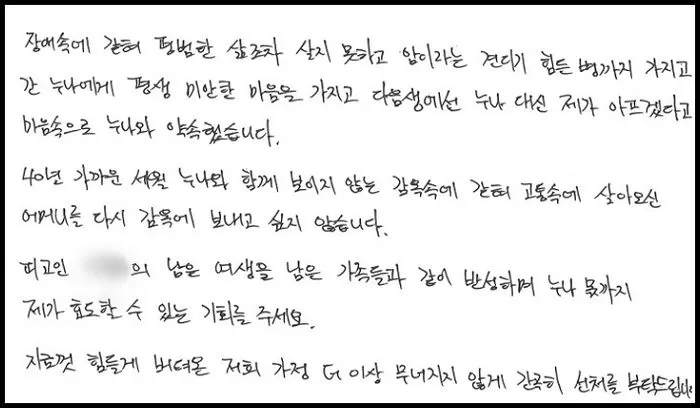 장애속에 갇혀 평범한 삶조차 살지 못하고 암이라는 견디기 힘든 병까지 가지고
간 누나에게 평생 미안한 마음을 가지고 다음생에선 누나 대신 제가 아프겠다고
마음속으로 누나와 약속했습니다.
40년 가까운 세월 누나와 함께 보이지 않는 감옥속에 갇혀 고통속에 살아오신
어머니를 다시 감옥에 보내고 싶지 않습니다.
피고인 의 남은 여생을 남은 가족들과 같이 반성하며 누나 몫까지
제가 효도할 수 있는 기회를 주세요.
지금껏 힘들게 버텨온 저희 가정 더 이상 무너지지 않게 간곡히 선처를 부탁드립니다